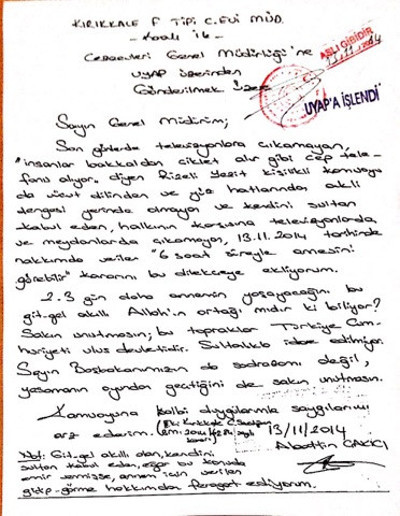 KIRIKKALE F TİPİ C.EVİ MÜD.
Cezaevleri Genel Müdürlüğü'ne
UYAP üzerinden
Gönderilmek Üzere
ASLI GİBİDİR
UYAP'A İŞLENDİ
Sayın Genel Müdürüm;
Son günlerde televizyonlara çıkamayan,
"insanlar bakkaldan ciklet alır gibi cep tele-
fonu alıyor" diyen Rizeli Yezit kişilikli kamuoyu
da vücut dilinden ve yüz hatlarından akli
dengesi yerinde olmayan ve kendini sultan
kabul eden, halkının karşısına televizyonlarda
ve meydanlarda çıkamayan, 13.11.2014 tarihinde
hakkımda verilen "6 saat süreyle annesini
görebilir" kararını bu dilekçeye ekliyorum.
2-3 gün daha annemin yaşayacağını bu
git-gel akıllı Allah'ın ortağı mıdır ki biliyor?
Sakın unutmasın; bu topraklar Türkiye Cum-
huriyeti ulus devletidir. Sultalıkla idare edilmiyor.
Sayın Başbakanımızın da sadrazam değil,
yasamanın oyundan geçtiğini de sakın unutmasın.
Kamuoyuna kalbi duygularımla saygılarımı
arz ederim.
13/11/2014
Alaattin ÇAKICI
Not: Git-gel akıllı olan, kendini
sultan kabul eden, eğer bu konuda
emir vermişse, annem için verilen
gidip-görme hakkımdan feragat ediyorum.